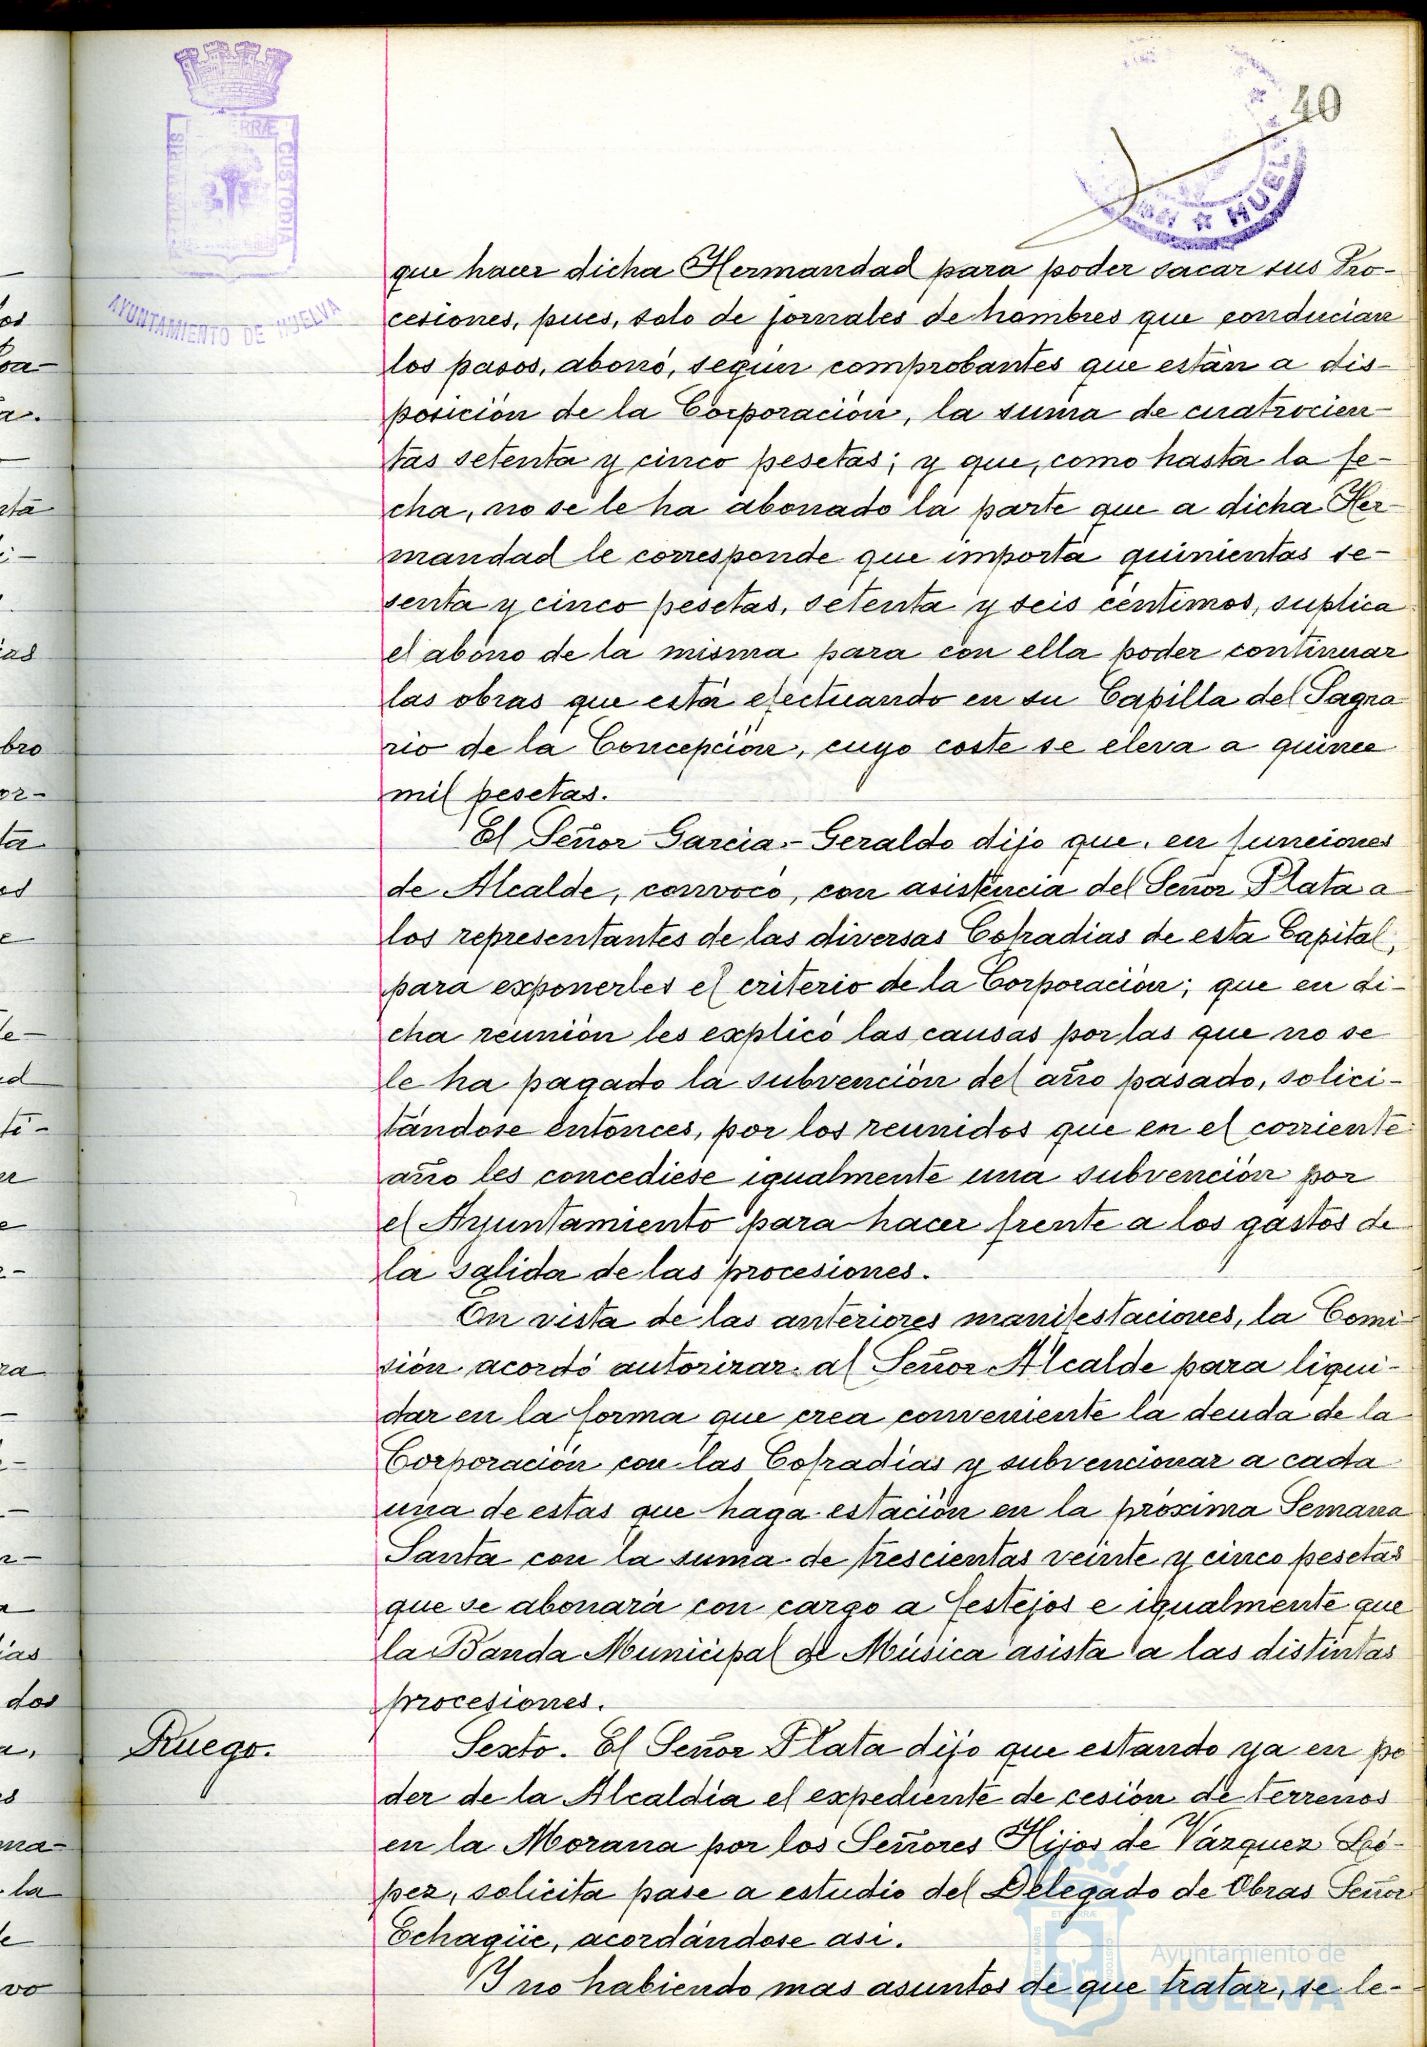 40
AYUNTAMIENTO DE HUELVA
CUSTODIA
HUEL
que hacer dicha Hermandad para poder sacar sus Pro-
cesiones, pues, solo de jornales de hombres que conducian
los pasos, abonó, según comprobantes que están a dis-
posición de la Corporación, la suma de cuatrocien-
tas setenta y cinco pesetas; y que, como hasta la fe-
cha, no se le ha abonado la parte que a dicha Her-
mandad le corresponde que importa quinientas se-
senta y cinco pesetas, setenta y seis céntimos, suplica
el abono de la misma para con ella poder continuar
las obras que está efectuando en su Capilla del Sagra
rio de la Concepción, cuyo coste se eleva a quince
mil pesetas.
El Señor Garcia-Geraldo dijo que, en funciones
de Alcalde, convocó, con asistencia del Señor Plata a
los representantes de las diversas Cofradias de esta Capital,
para exponerles el criterio de la Corporación; que en di-
cha reunión les explicó las causas por las que no se
le ha pagado la subvención del año pasado, solici-
tándose entonces, por los reunidos que en el corriente
año les concediese igualmente una subvención por
el Ayuntamiento para hacer frente a los gastos de
la salida de las procesiones.
En vista de las anteriores manifestaciones, la Comi
sión acordó autorizar al Señor Alcalde para liqui-
dar en la forma que crea conveniente la deuda de la
Corporación con las Cofradias y subvencionar a cada
una de estas que haga estación en la próxima Semana
Santa con la suma de trescientas veinte y cinco pesetas
que se abonará con cargo a festejos e igualmente que
la Banda Municipal de Música asista a las distintas
procesiones.
Ruego.
Sexto. El Señor Plata dijo que estando ya en po
der de la Alcaldía el expediente de cesión de terrenos
en la Morana por los Señores Hijos de Vázquez Ló-
pez, solicita pase a estudio del Delegado de Obras Señor
Echagüe, acordándose asi.
Y no habiendo mas asuntos de que tratar, se le-
Ayuntamiento de
HUELVA